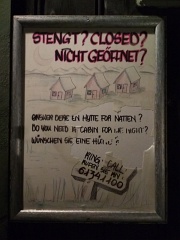 STENGT? CLOSED?
NICHT GEÖFFNET?
ØNSKER DERE EN HYTTE FOR NATTEN?
DO YOU NEED A CABIN FOR THE NIGHT?
WÜNSCHEN SIE EINE HÜTTE?
RING - CALL
RUFEN SIE AN:
61341100